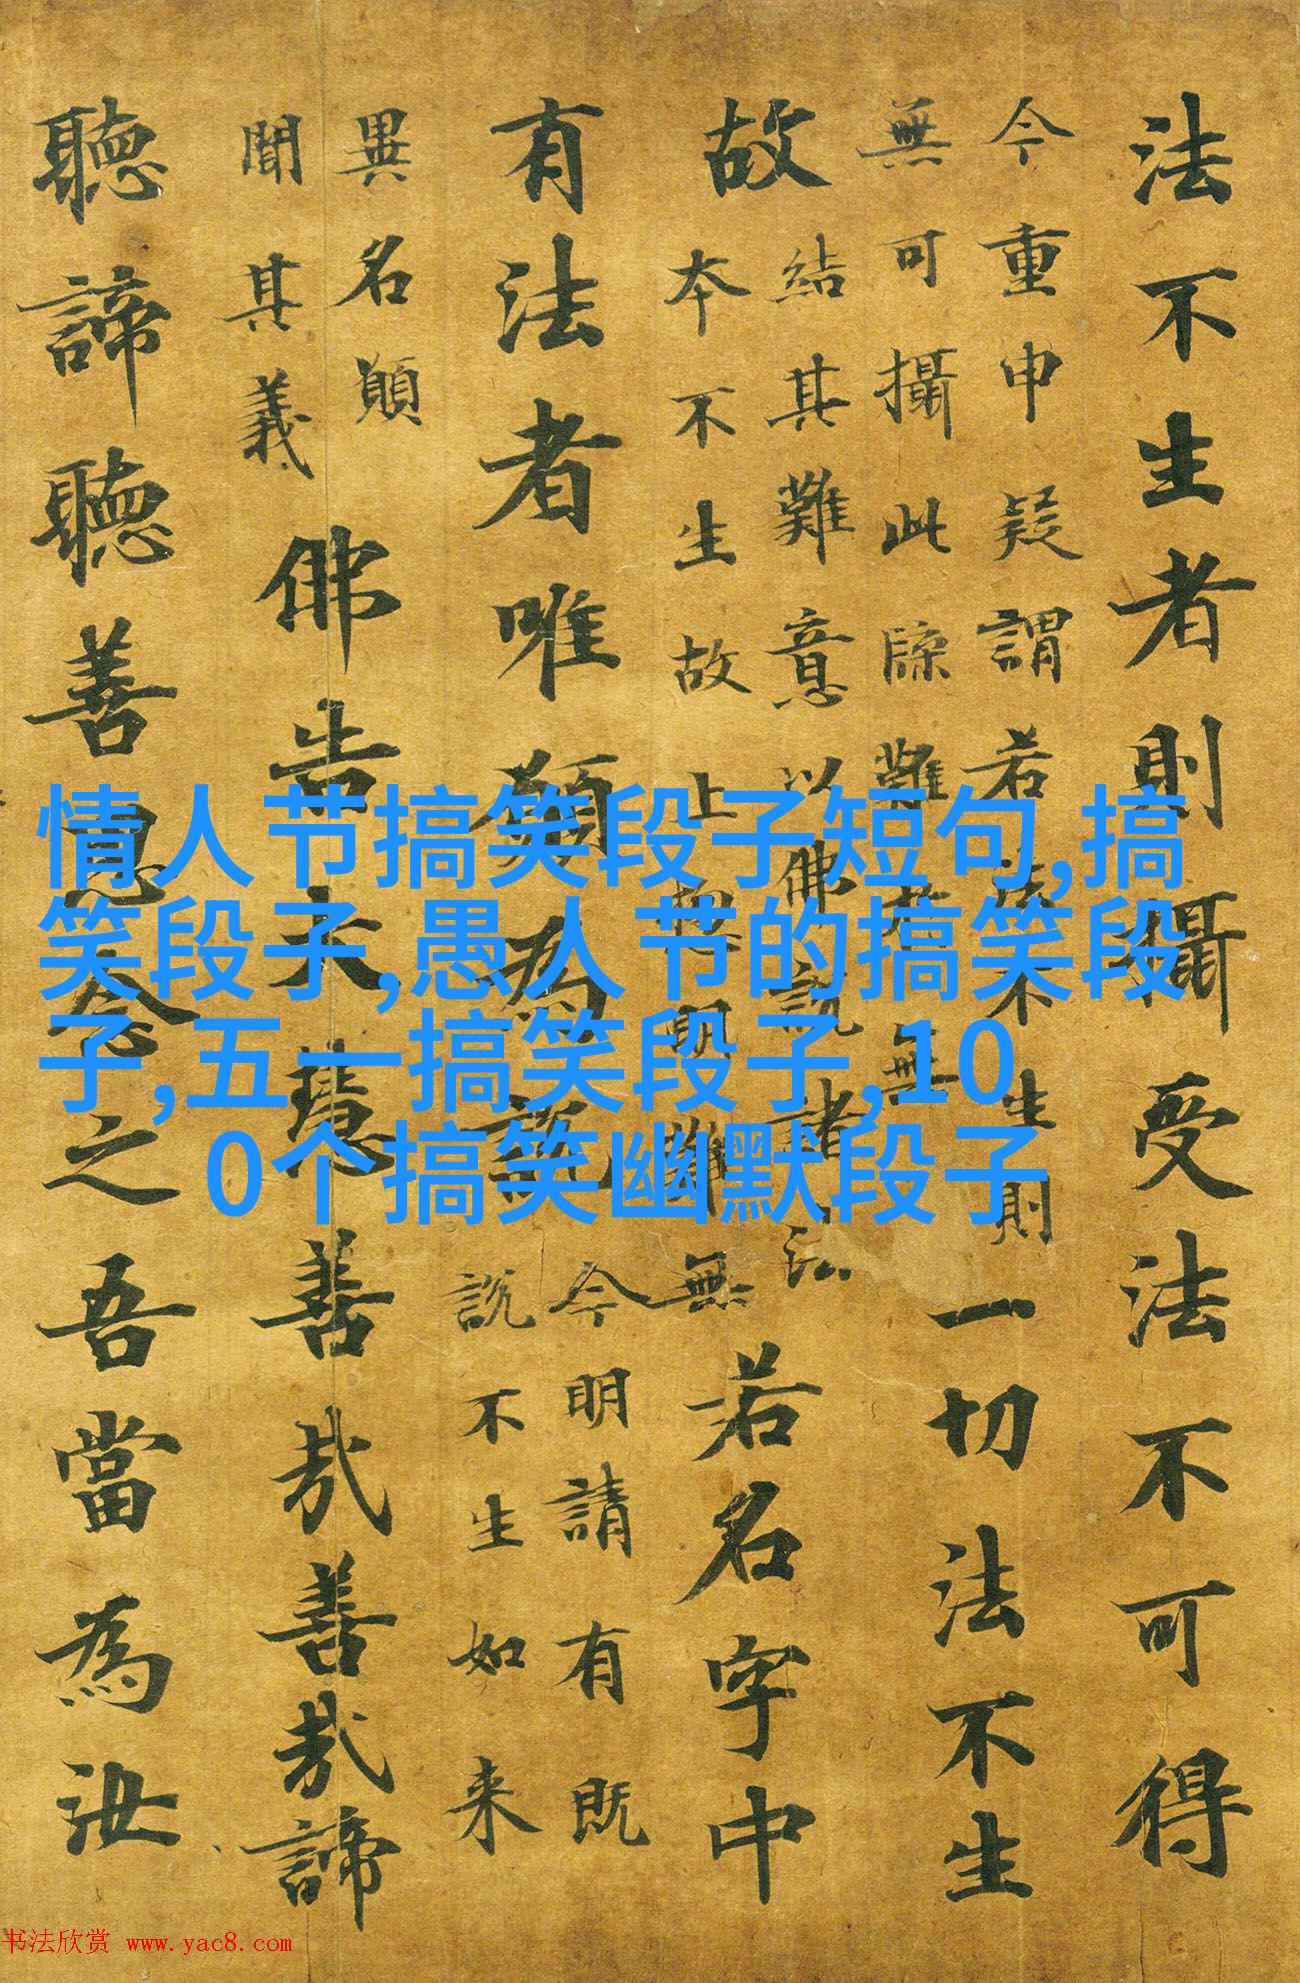 法不生者則攝受法不可得
今重申疑謂若法不生則
無可攝此牒難若無
一切法不生
故
結其難意以佛說諸法
本不生故止明難無
若名字中
有法者唯願為說
今明請有既
說不生如来
異名願
聞其義
佛告大慧善哉善哉諦
聽諦聽善思念之吾當為汝
情人节搞笑段子短句,搞
笑段子,愚人节的搞笑段
子,五一搞笑段子,10
0个搞笑幽默段子
书法欣赏 www.yac8.com